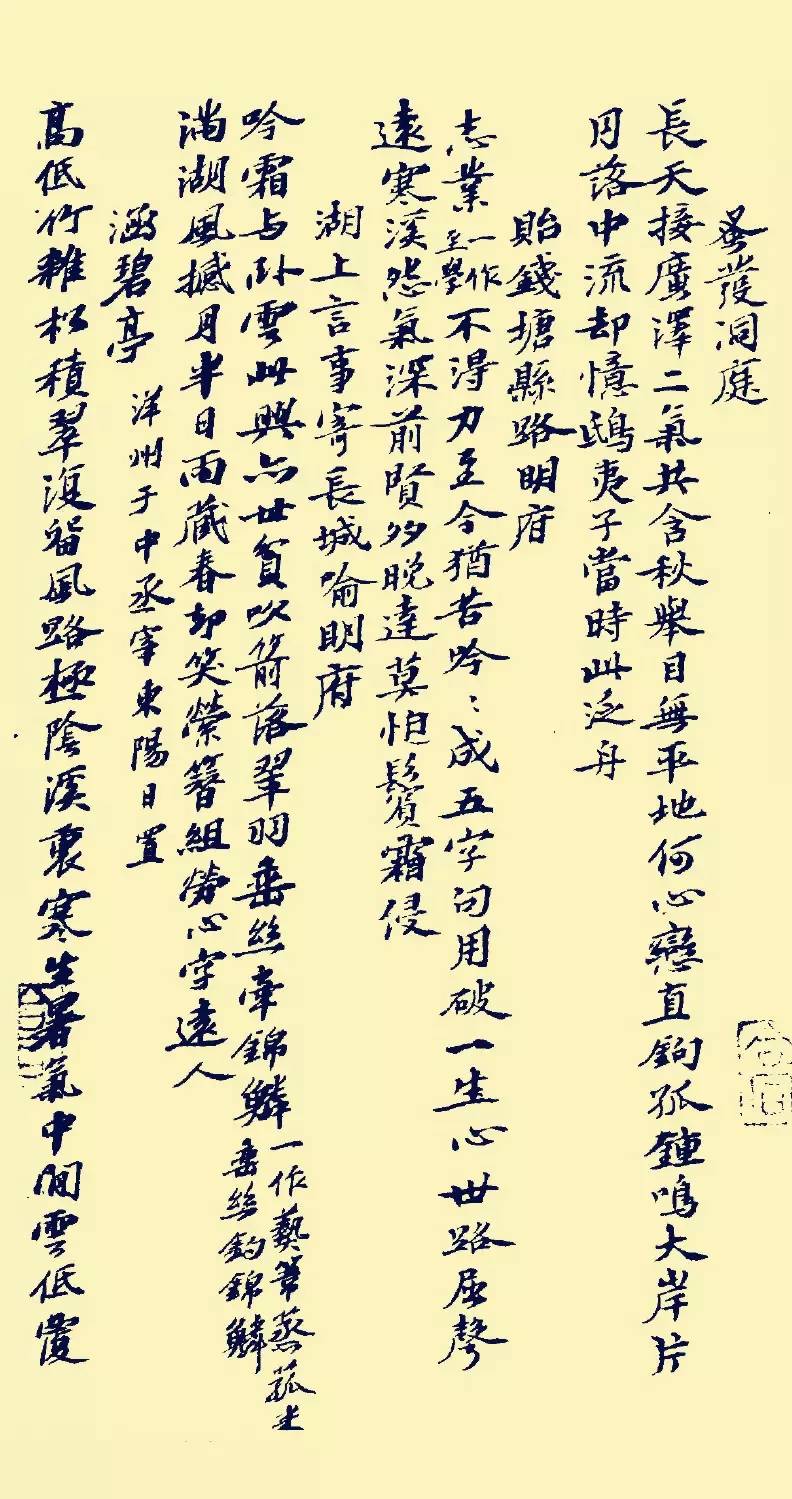 蚤發洞庭
長天接廣澤二氣共含秋舉目無平地何心戀直鉤孤鍾鳴大岸片
月落中流却憶鴟夷子當時此泛舟
貽錢塘縣路明府
志業一作至學不得力至今猶苦吟〻成五字句用破一生心世路屈聲
遠寒溪怨氣深前賢多晚達莫怕鬢霜侵
湖上言事寄長城喻明府
吟霜与卧雲此興亦甘貧吹箭落翠羽垂絲牽錦鱗一作蒸菰米垂絲釣錦鱗
滿湖風撼月半日雨藏春却笑縈簪組勞心字遠人
涵碧亭 洋州于中丞宰東陽日置
高低竹雜松積翠復留風路極陰溪裏寒生暑氣中閒雲低覆